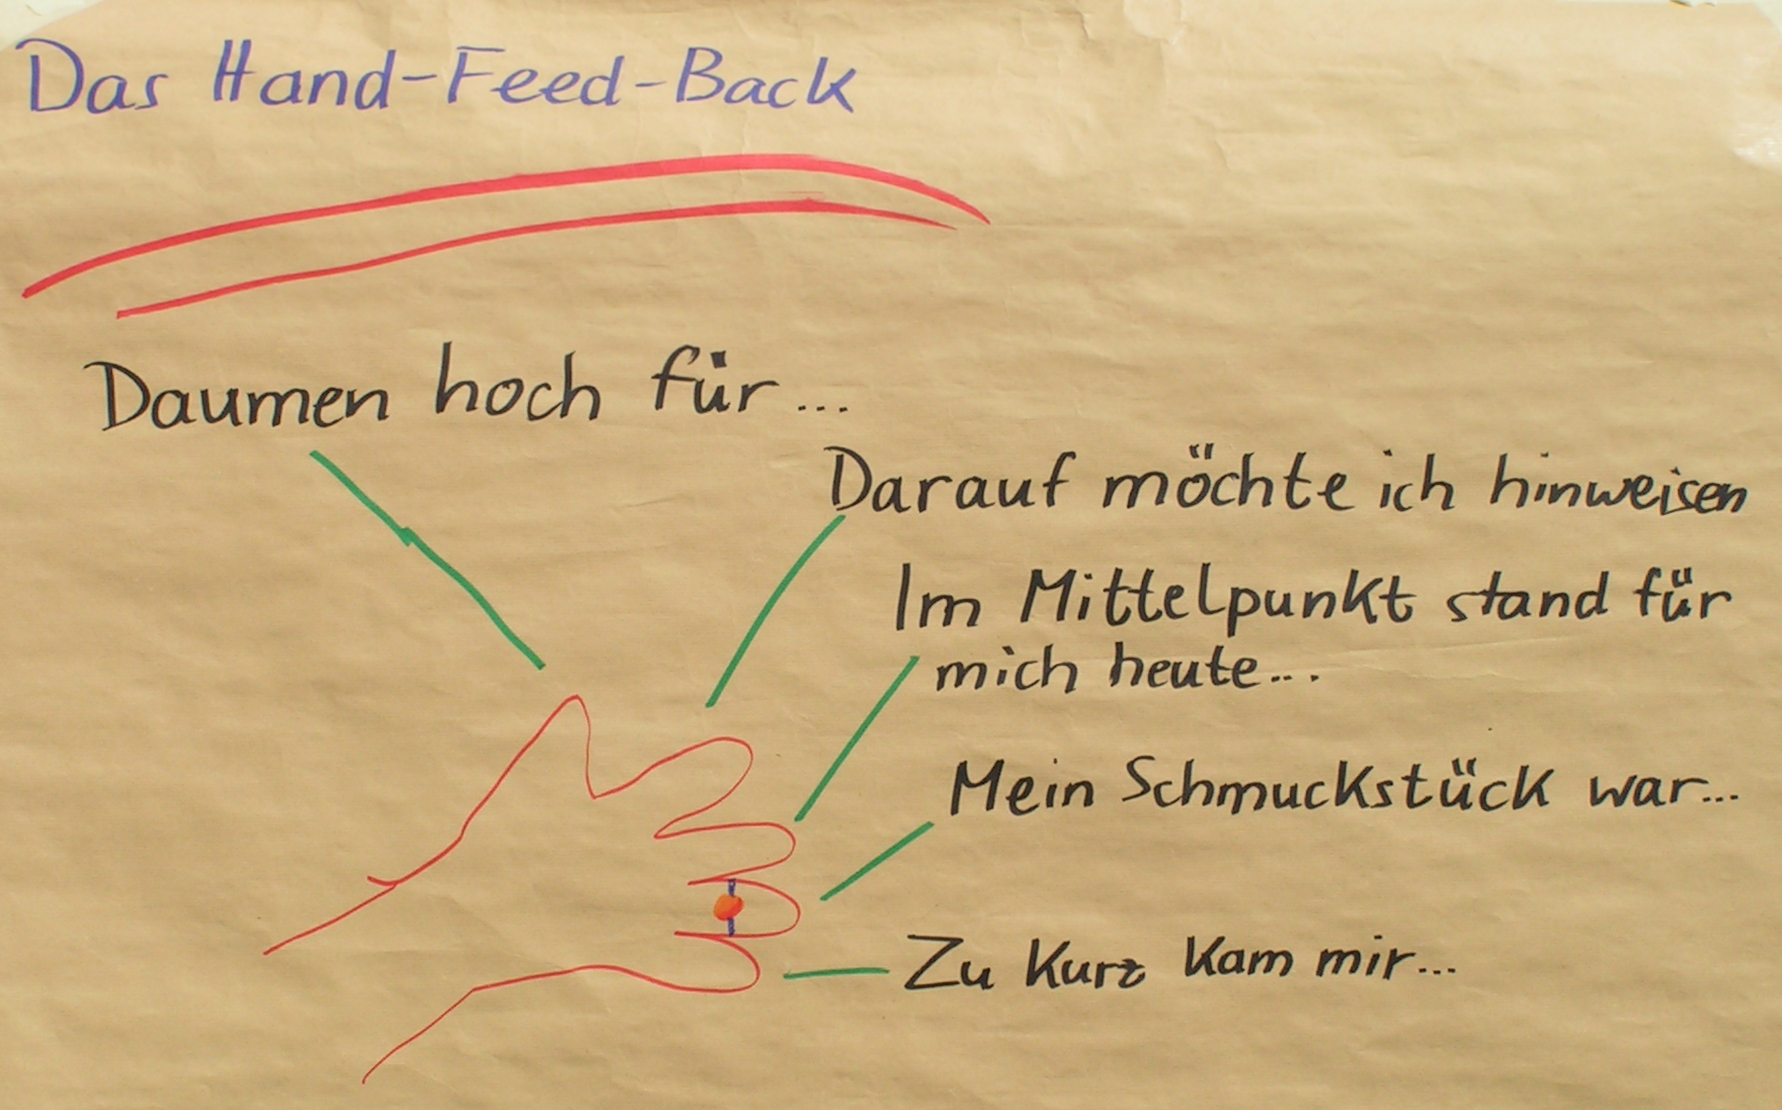 Das Hand-Feed-Back
Daumen hoch für...
Darauf möchte ich hinweisen
Im Mittelpunkt stand für
mich heute...
Mein Schmuckstück war...
Zu kurz kam mir...